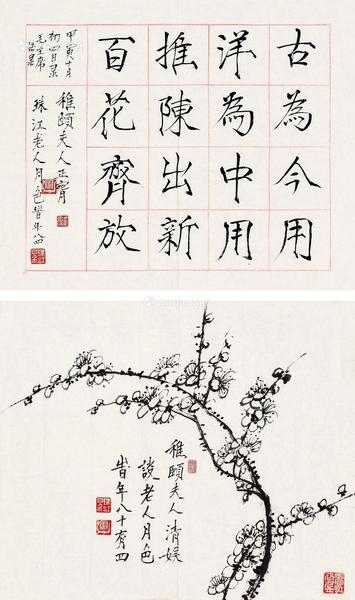 古為今用
洋為中用
推陳出新
百花齊放
甲寅十月
初四日录
毛主席
語录
稚頤夫人正寫
珠江老人月色時年八四
稚頤夫人清娛
談老人月色
時年八十有四